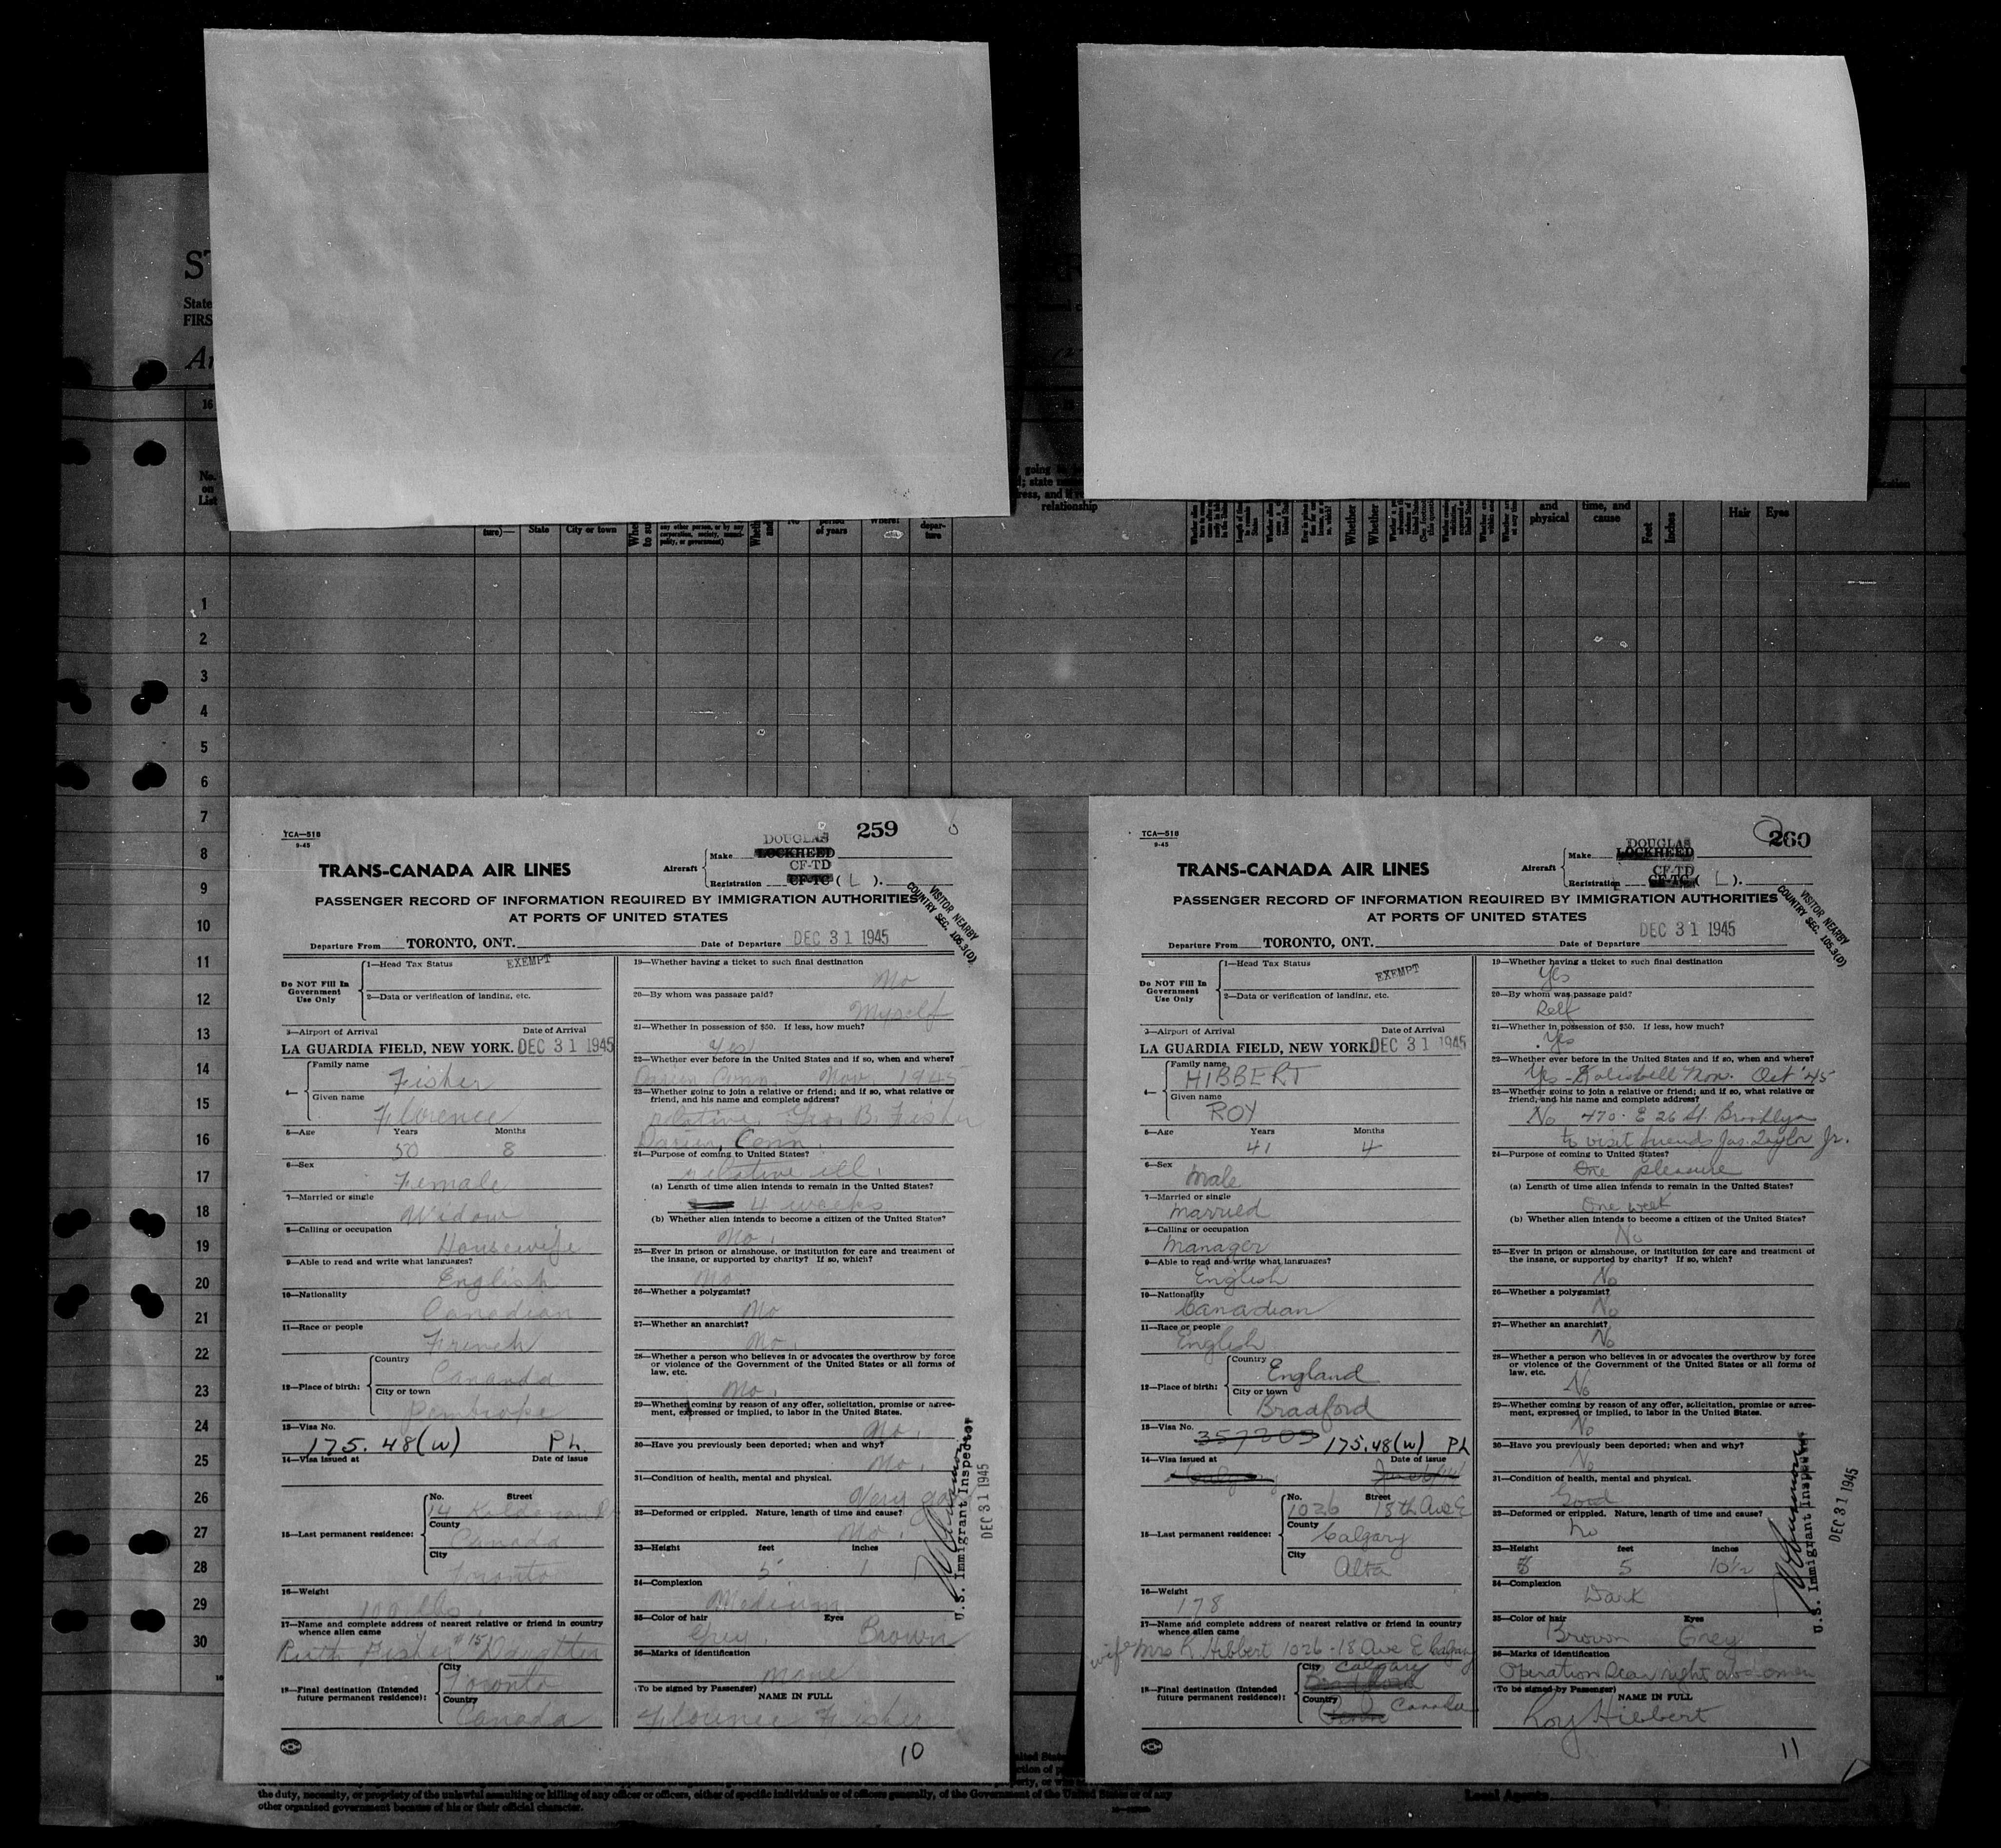 State
FIRS
16
No.
on
List
relationship
ture)—
State
City or town
any other person, or by any
corporation, society, munici-
pality, or government)
of years
depar-
ture
and
physical
time, and
cause
Feet
Inches
Hair
Eyes
1
2
3
4
5
6
7
8
9
10
11
12
13
14
15
16
17
18
19
20
21
22
23
24
25
26
27
28
29
30
TCA—518
9-45
DOUGLAS
259
Aircraft
Make
LOCKHEED
CF-TD
Registration CF-TC ( L ).
TRANS-CANADA AIR LINES
PASSENGER RECORD OF INFORMATION REQUIRED BY IMMIGRATION AUTHORITIES
AT PORTS OF UNITED STATES
VISITOR NEARBY
COUNTRY SEC. 105.3(D)
Departure From TORONTO, ONT. Date of Departure DEC 31 1945
Do NOT Fill In
Government
Use Only
1—Head Tax Status EXEMPT
2—Data or verification of landing, etc.
3—Airport of Arrival Date of Arrival
LA GUARDIA FIELD, NEW YORK. DEC 31 1945
4—
Family name
Fisher
Given name
Florence
5—Age Years Months
50 8
6—Sex
Female
7—Married or single
Widow
8—Calling or occupation
Housewife
9—Able to read and write what languages?
English
10—Nationality
Canadian
11—Race or people
French
12—Place of birth:
Country
Cananda
City or town
Pembroke
13—Visa No.
175.48(w) Ph.
14—Visa issued at Date of issue
15—Last permanent residence:
No. Street
14
County
Canada
City
Toronto
16—Weight
100 lbs.
17—Name and complete address of nearest relative or friend in country
whence alien came
Ruth Fisher Daughter
18—Final destination (Intended
future permanent residence):
City
Toronto
Country
Canada
19—Whether having a ticket to such final destination
No
20—By whom was passage paid?
Myself
21—Whether in possession of $50. If less, how much?
Yes
22—Whether ever before in the United States and if so, when and where?
Darien Conn Nov. 1945
23—Whether going to join a relative or friend; and if so, what relative or
friend, and his name and complete address?
relative. Geo. B. Fisher
Darien, Conn.
24—Purpose of coming to United States?
relative ill.
(a) Length of time alien intends to remain in the United States?
4 weeks
(b) Whether alien intends to become a citizen of the United States?
No.
25—Ever in prison or almshouse, or institution for care and treatment of
the insane, or supported by charity? If so, which?
No.
26—Whether a polygamist?
No
27—Whether an anarchist?
No.
28—Whether a person who believes in or advocates the overthrow by force
or violence of the Government of the United States or all forms of
law, etc.
No.
29—Whether coming by reason of any offer, solicitation, promise or agree-
ment, expressed or implied, to labor in the United States.
No.
30—Have you previously been deported; when and why?
No.
31—Condition of health, mental and physical.
Very good
32—Deformed or crippled. Nature, length of time and cause?
No.
33—Height feet inches
5 1
34—Complexion
Medium
35—Color of hair Eyes
Grey Brown
36—Marks of identification
None
(To be signed by Passenger) NAME IN FULL
Florence Fisher
U.S. Immigrant Inspector
DEC 31 1945
10
TCA—518
9-45
DOUGLAS
260
Aircraft
Make
LOCKHEED
CF-TD
Registration CF-TC ( L ).
TRANS-CANADA AIR LINES
PASSENGER RECORD OF INFORMATION REQUIRED BY IMMIGRATION AUTHORITIES
AT PORTS OF UNITED STATES
VISITOR NEARBY
COUNTRY SEC. 105.3(D)
Departure From TORONTO, ONT. Date of Departure DEC 31 1945
Do NOT Fill In
Government
Use Only
1—Head Tax Status EXEMPT
2—Data or verification of landing, etc.
3—Airport of Arrival Date of Arrival
LA GUARDIA FIELD, NEW YORK. DEC 31 1945
4—
Family name
HIBBERT
Given name
ROY
5—Age Years Months
41 4
6—Sex
Male
7—Married or single
Married
8—Calling or occupation
Manager
9—Able to read and write what languages?
English
10—Nationality
Canadian
11—Race or people
English
12—Place of birth:
Country
England
City or town
Bradford
13—Visa No.
357203 175.48(w) Ph
14—Visa issued at Date of issue
Calgary
15—Last permanent residence:
No. Street
1026 18th Ave E
County
Calgary
City
Alta
16—Weight
178
17—Name and complete address of nearest relative or friend in country
whence alien came
wife Mrs R. Hibbert 1026 · 18 Ave E Calgary
18—Final destination (Intended
future permanent residence):
City Calgary
Bradford
Country
Canada
19—Whether having a ticket to such final destination
Yes
20—By whom was passage paid?
Self
21—Whether in possession of $50. If less, how much?
Yes
22—Whether ever before in the United States and if so, when and where?
Yes - Kalispell Mon. Oct '45
23—Whether going to join a relative or friend; and if so, what relative or
friend, and his name and complete address?
No 470 · E 26 St. Brooklyn
to visit friends Jas. Taylor Jr.
24—Purpose of coming to United States?
One pleasure
(a) Length of time alien intends to remain in the United States?
One week
(b) Whether alien intends to become a citizen of the United States?
No
25—Ever in prison or almshouse, or institution for care and treatment of
the insane, or supported by charity? If so, which?
No
26—Whether a polygamist?
No
27—Whether an anarchist?
No
28—Whether a person who believes in or advocates the overthrow by force
or violence of the Government of the United States or all forms of
law, etc.
No
29—Whether coming by reason of any offer, solicitation, promise or agree-
ment, expressed or implied, to labor in the United States.
No
30—Have you previously been deported; when and why?
No
31—Condition of health, mental and physical.
Good
32—Deformed or crippled. Nature, length of time and cause?
No
33—Height feet inches
5 10½
34—Complexion
Dark
35—Color of hair Eyes
Brown Grey
36—Marks of identification
Operation Scar right abdomen
(To be signed by Passenger) NAME IN FULL
Roy Hibbert
U.S. Immigrant Inspector
DEC 31 1945
11
the duty, necessity, or propriety of the unlawful assaulting or killing of any officer or officers, either of specific individuals or of officers generally, of the Government of the United States or of any
other organized government because of his or their official character.
Local Agents